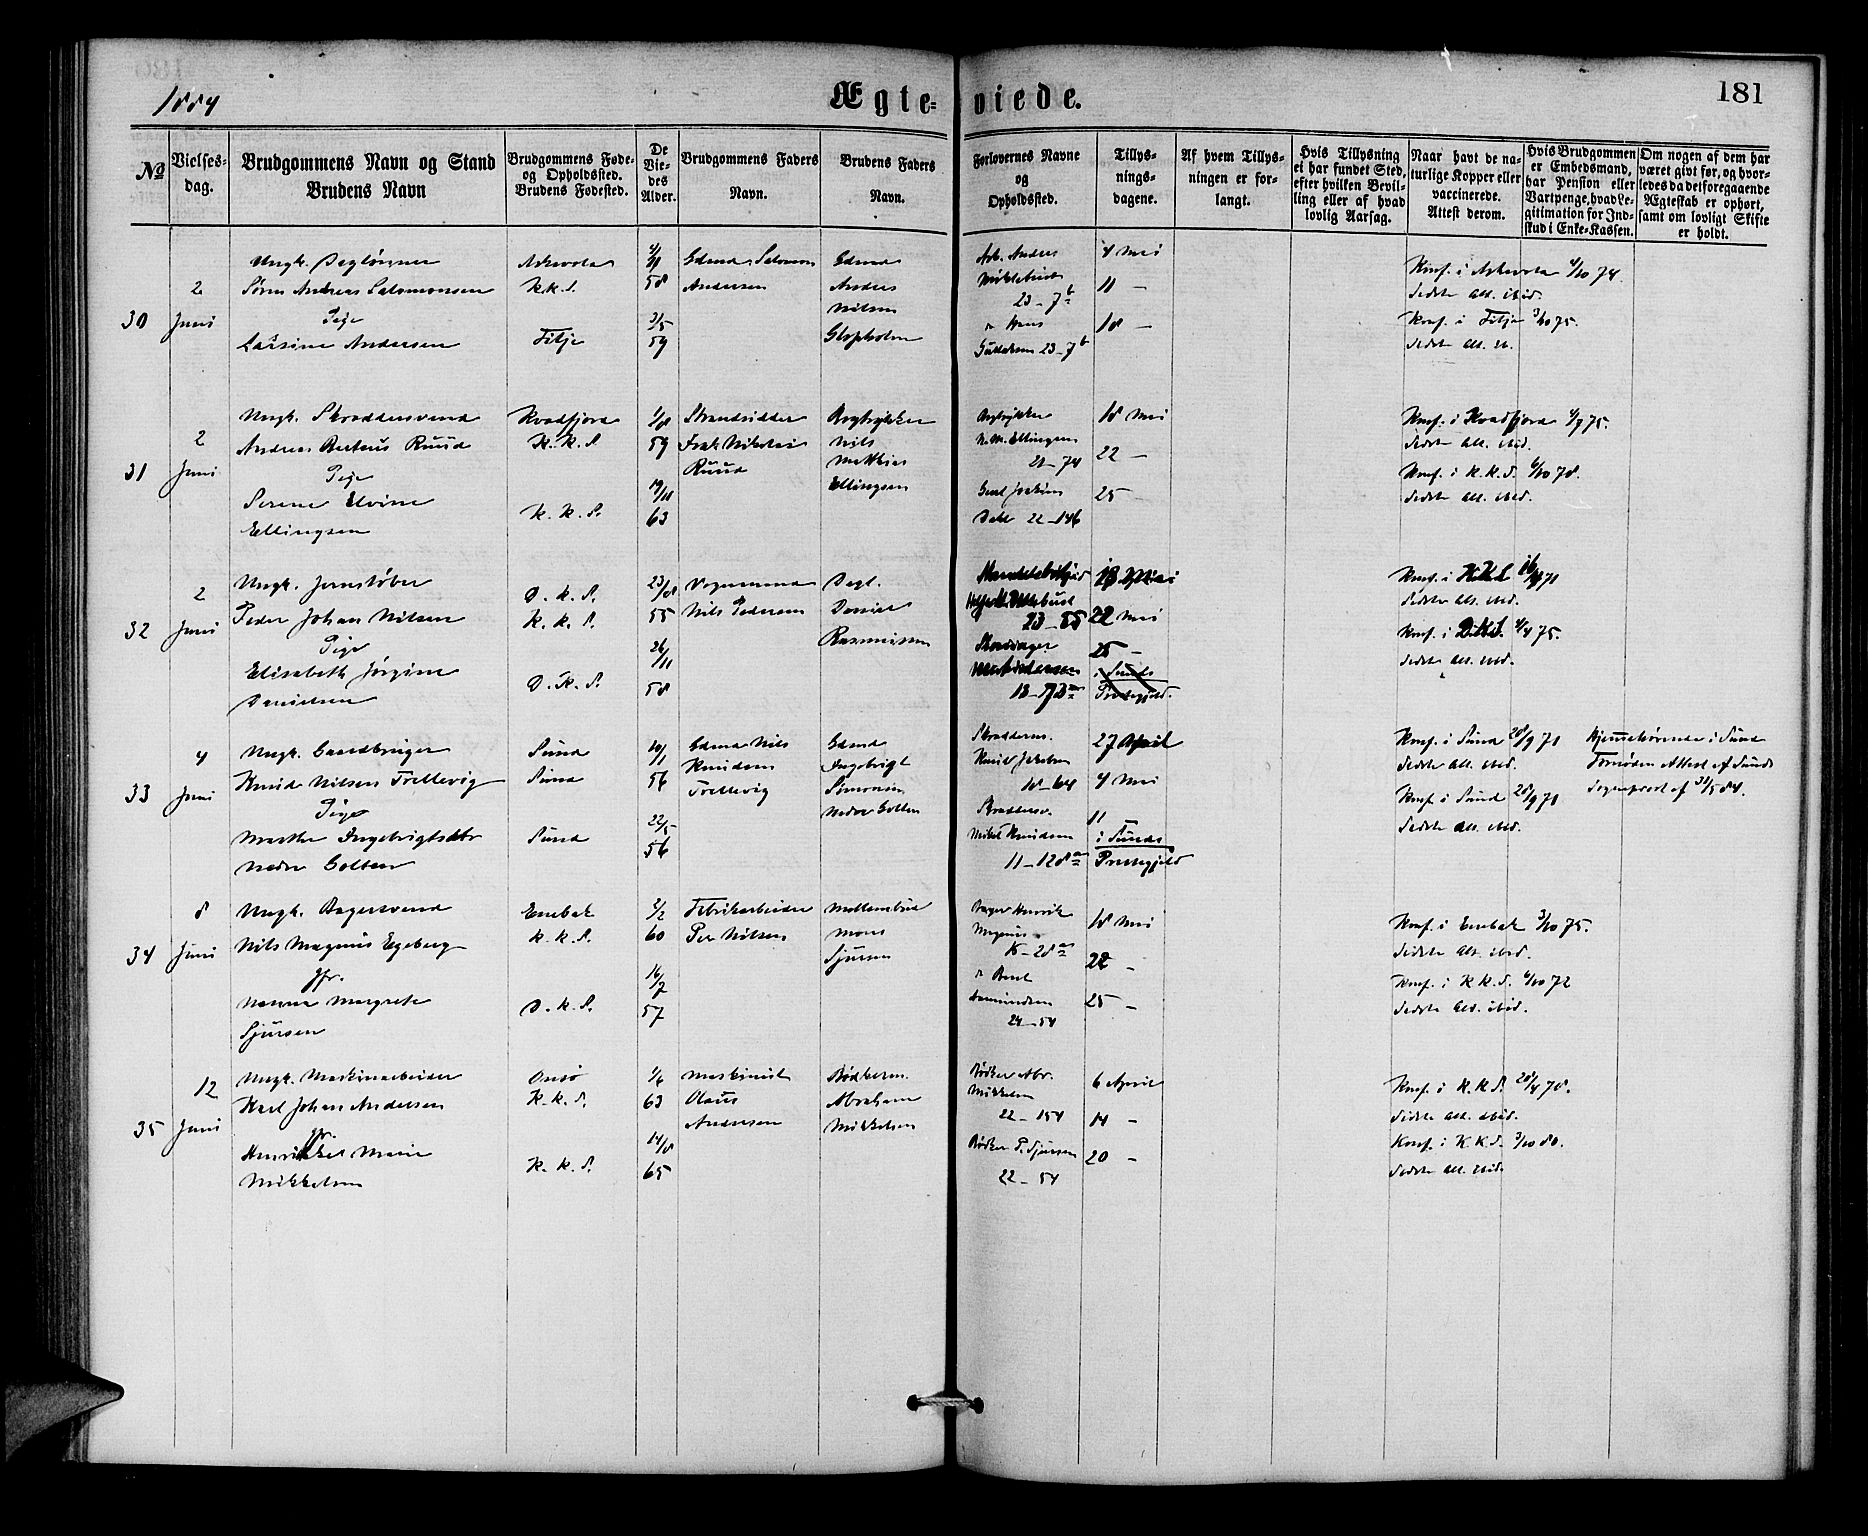 1884
Ægte-
viede.
181
No
Vielses-
dag.
Brudgommens Navn og Stand
Brudens Navn
Brudgommens Føde-
og Opholdsted.
Brudens Fødested.
De
Vie-
des
Alder.
Brudgommens Faders
Navn.
Brudens Faders
Navn.
Forlovernes Navne
og
Opholdsted.
Tillys-
nings-
dagene.
Af hvem Tillys-
ningen er for-
langt.
Hvis Tillysning
ei har fundet Sted,
efter hvilken Bevil-
ling eller af hvad
lovlig Aarsag.
Naar havt de na-
turlige Kopper eller
vaccinerede.
Attest derom.
Hvis Brudgommen
er Embedsmand,
har Pension eller
Vartpenge, hvad Le-
gitimation for Ind-
skud i Enke-Kassen.
Om nogen af dem har
været givt før, og hvor-
ledes da det foregaaende
Ægteskab er ophørt,
samt om lovligt Skifte
er holdt.
30
2
Juni
Ungk.
Søren Andreas Salomonsen
Pige
Larsine Andersen
Askevold
K.K.S.
Fitje
58
3/5
59
Gdmd. Salomon
Andersen
Gdmd.
Anders
Nilsen
Arb. Anders
23-7 b
Hans
23-7 b
4 Mai
11 -
18 -
Konf. i Askevold 4/10 74.
Sidste Alt. ibid.
Konf. i Fitje 3/10 75.
Sidste Alt. ib.
31
2
Juni
Ungk. Skræddersvend
Andreas Berteus Ruud
Pige
Serine Elvine
Ellingsen
Kvadfjord
K.K.S
K.K.S.
1/8
59
19/11
63
Strandsidder
Nikolai
Ruud
Nils
Mathias
Ellingsen
N.M. Ellingsen
21-74
Dahl 22-146
18 Mai
22 -
25 -
Konf. i Kvadfjord 4/7 75.
Sidste Alt. ibid.
Konf. i K.K.S. 6/10 78.
Sidste Alt. ibid.
32
2
Juni
Ungk. Jernstøber
Peder Johan Nilsen
Pige
Elisabeth Jørgine
Danielsen
D.K.S.
K.K.S.
D.K.S.
23/8
55
26/11
58
Vognmand
Nils Pedersen
Dagl.
Daniel
Rasmussen
23-55
18 Mai
22 Mai
25 -
i Sunds
Præstegjeld.
Konf. i
Sidste Alt. ibid.
Konf. i D.K.S. 4/4 75.
Sidste Alt. ibid.
33
4
Juni
Ungk. Gaardbruger
Knud Nilsen Trellevig
Pige
Marthe Ingebrigtsdtr
Nedre Golten
Sund
Sund
Sund
10/1
56
22/5
56
Gdmd Nils
Knudsen
Trellevig
Gdmd
Ingebrigt
Simonsen
Nedre Golten
Skræddersv.
Knud Jakobsen
18-64
Skræddersv.
Mikel Knudsen
11-128
27 April
4 Mai
11
i Sunds
Præstegjeld
Konf. i Sund 28/9 71
Sidste Alt. ibid.
Konf. i Sund 28/9 71
Sidste Alt. ibid.
Hjemmehørende i Sund
Fornøden Attest af Sunds
Sogneprest af 31/5 84.
34
8
Juni
Ungk. Bagersvend
Nils Magnus Egeberg
Jfr.
Nanna Margrete
Sjursen
Enebak
K.K.S.
D.K.S.
2/2
60
16/7
57
Fabrikarbeider
Per Nilsen
Mons
Sjursen
Bager Henrik
Magnus
Bernt
24-54
18 Mai
22 -
25 -
Konf. i Enebak 3/10 75.
Sidste Alt. ibid.
Konf. i K.K.S. 6/10 72
Sidste Alt. ibid.
35
12
Juni
Ungk. Maskinarbeider
Karl Johan Andersen
Jfr.
Marie
Mikkelsen
Onsø
K.K.S.
K.K.S.
1/6
63
14/8
65
Maskinist
Olaus
Andersen
Bødkerm.
Abraham
Mikkelsen
Bødker Abr.
Mikkelsen
22-154
Bødker P. Sjursen
22-54
6 April
14 -
20 -
Konf. i K.K.S. 28/4 78.
Sidste Alt. ibid.
Konf. i K.K.S. 3/10 80.
Sidste Alt. ibid.